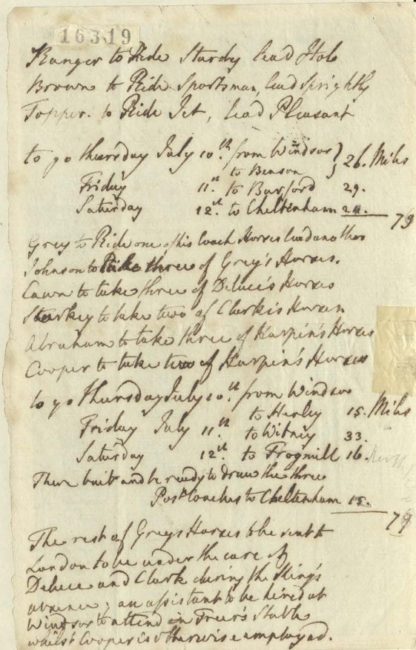 16319
Ranger to Ride Sturdy lead Hob
Brown to Ride Sportsman, lead Sprightly
Topper. to Ride Jet, lead Pleasant
to go thursday July 10.th from Windsor } 26. Miles
to Benson
Friday 11.th to Burford 29.
Saturday 12.th to Cheltenham 24. 79
Grey to Ride one of his Coach Horses lead another
Johnson to take three of Grey's Horses.
Cawn to take three of Deluce's Horses
Starkey to take two of Clark's Horses
Abraham to take three of Harpin's Horses
Cooper to take two of Harpin's Horses
to go Thursday July 10.th from Windsor
to Henley 15. Miles
Friday July 11.th to Witney 33.
Saturday 12.th to Frogmill 16.
There bait and be ready to draw the three
Post Coaches to Cheltenham 15. 79
The rest of Greys Horses to be sent to
London to be under the care of
Deluce and Clark during the King's
absence, an assistant to be hired at
Windsor to attend in Freer's Stable
whilst Cooper is otherwise employed.